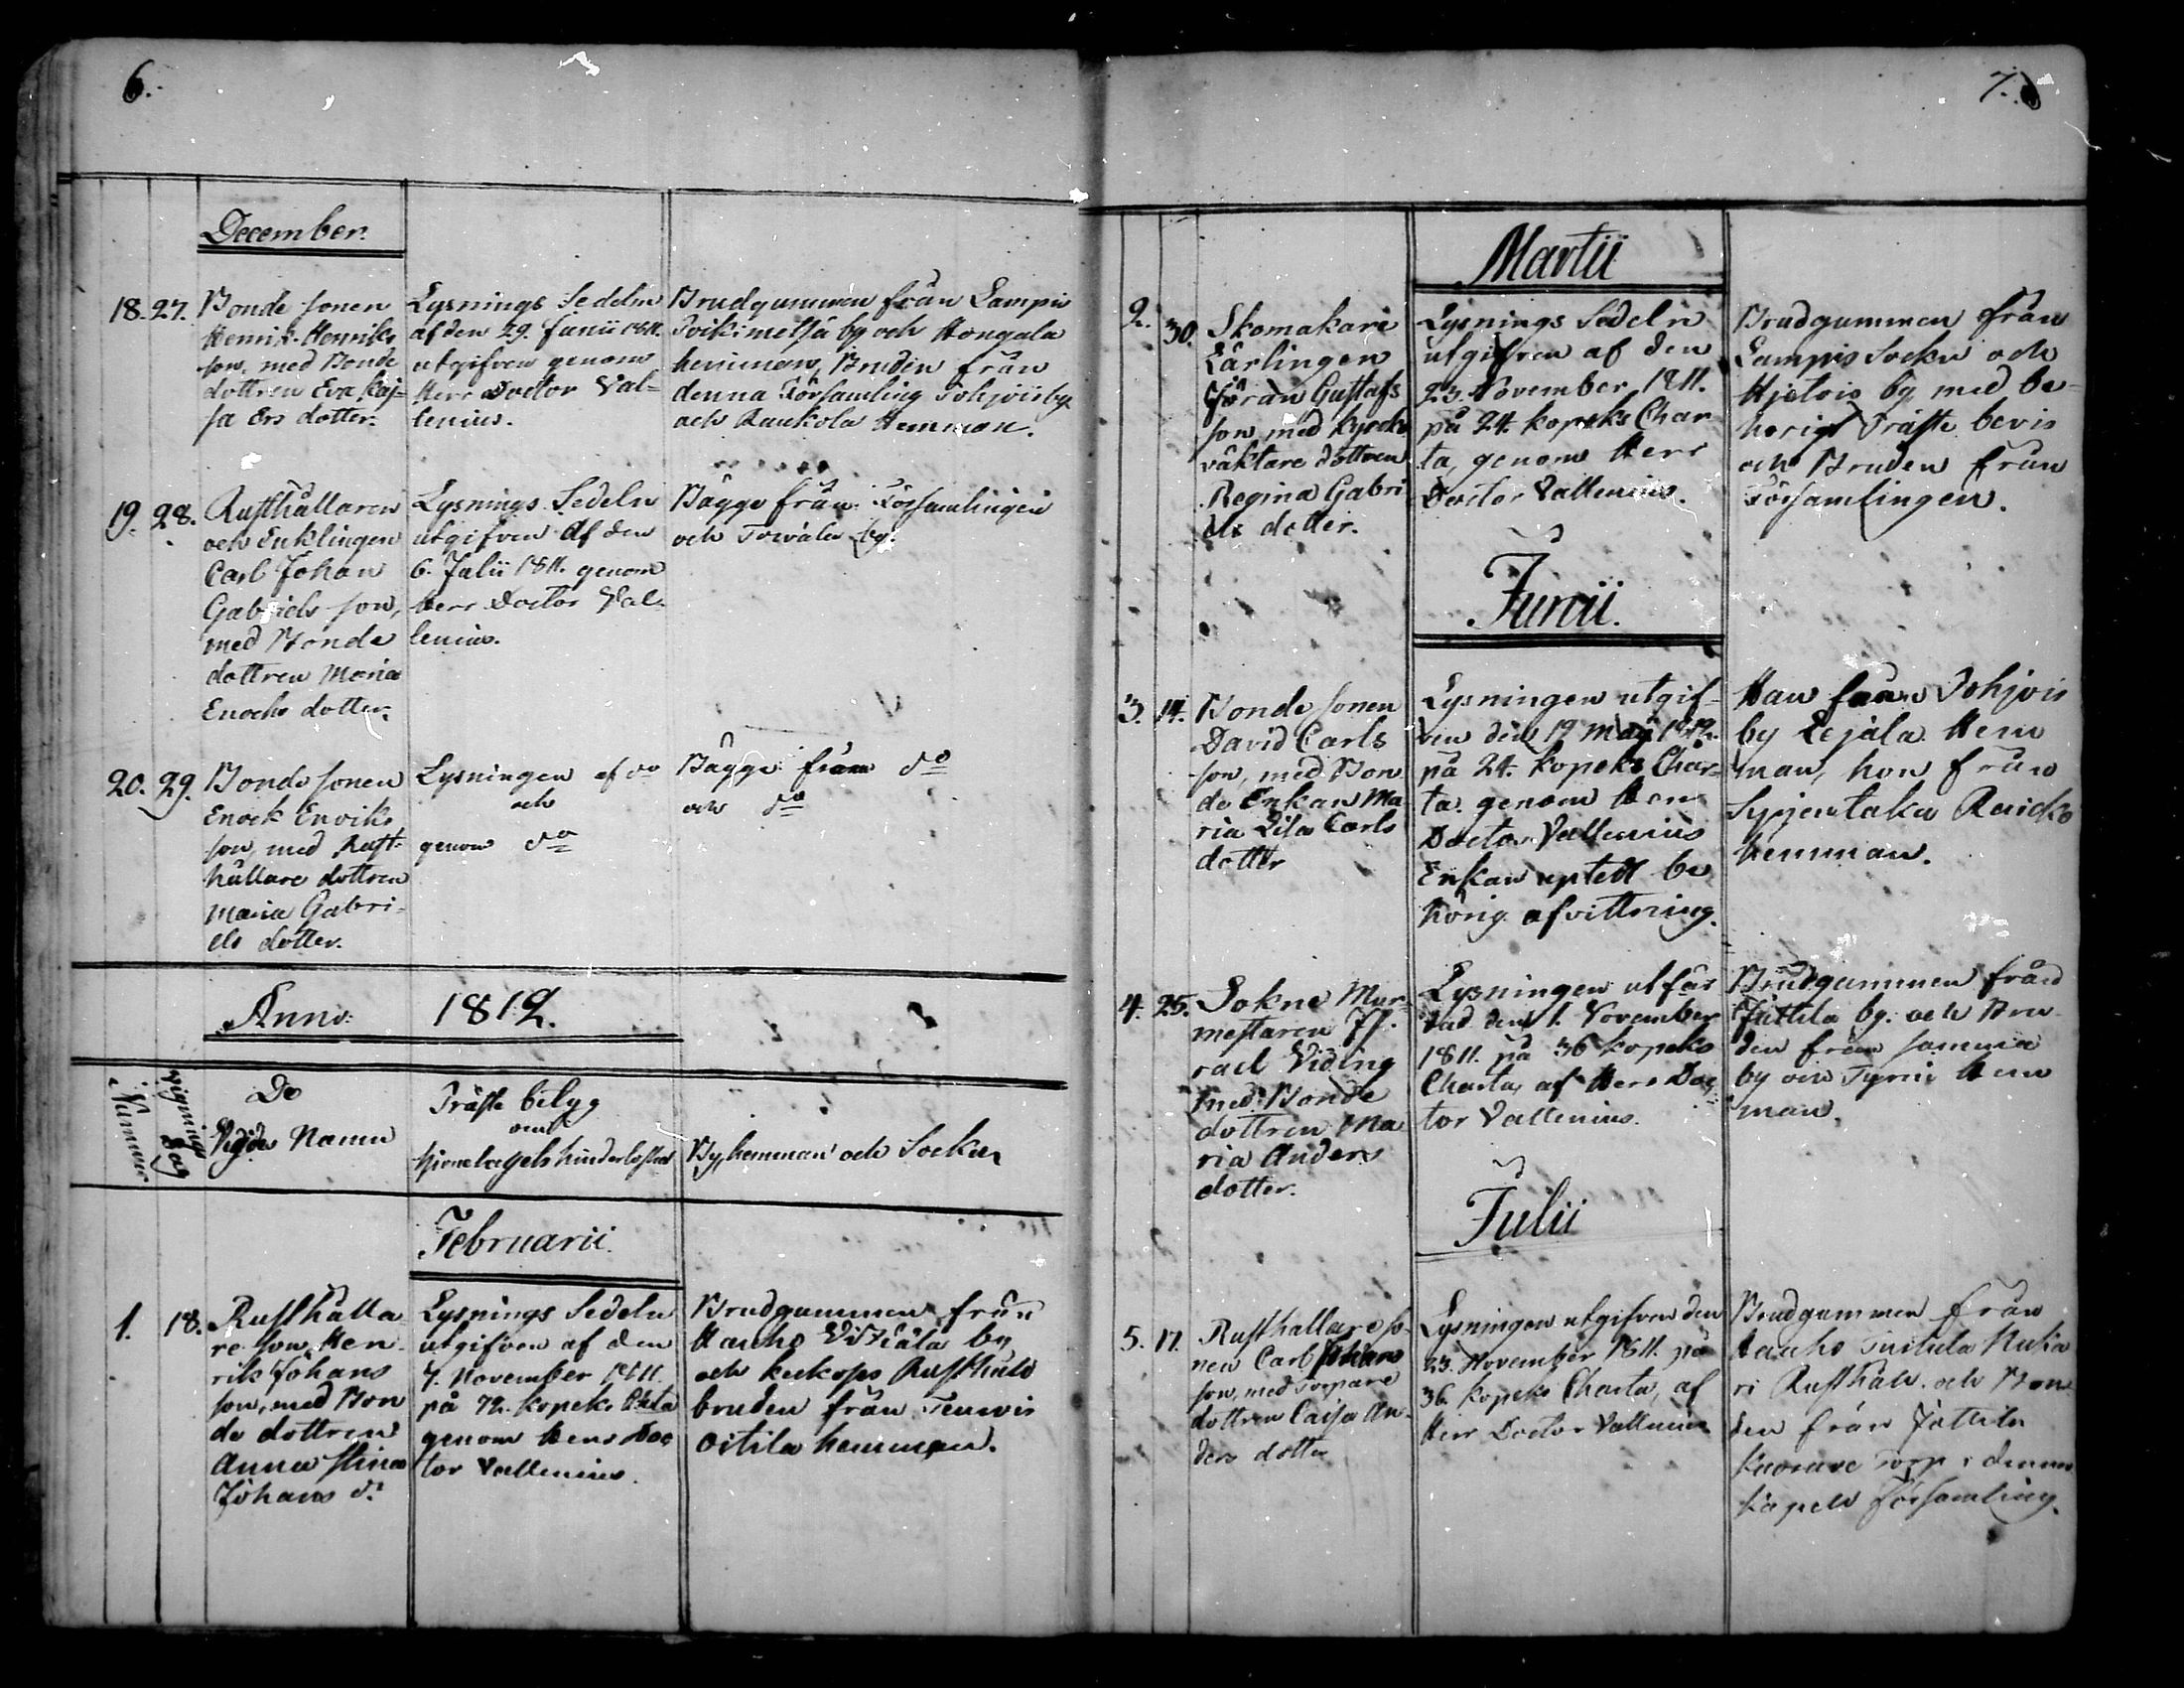 6.
December.
18. 27. Bonde sonen
Henric Henriks
son, med Bonde
dottren Eva Caj-
sa Ers dotter.
Lysnings Sedeln
af den 29. Junii 1811.
utgifven genom
Herr Doctor Val-
lenius.
Brudgummen från Lampis
by och Hongala
hemman, Bruden från
denna Församling Pohjois by
och Raukola Hemman.
19. 28. Rusthållaren
och Enklingen
Carl Johan
Gabriels son,
med Bonde
dottren Maria
Enochs dotter.
Lysnings Sedeln
utgifven af den
6. Julii 1811. genom
Herr Doctor Val-
lenius.
Bägge från Församlingen
och by.
20. 29. Bonde sonen
Enock Enriks
son, med Rust-
hållare dottren
Maria Gabri-
els dotter.
Lysningen af do
och
genom do
Bägge från do
och do
Anno: 1812.
Nummer
Vignings Dag
De
Vigdes Namn
Präste bilyg
om
hinderlöshet
By, hemman och Socken
Februarii
1. 18. Rusthålla
re son Hen-
rik Johans
son, med Bon
de dottren
Anna Stina
Johans d:
Lysnings Sedeln
utgifven af den
7. November 1811.
på 72. kopek. Chta
genom Herr Doc
tor Vallenius.
Brudgummen från
Hauho by
och Rusthåld
bruden från
Oitila hemman.
7.
Martii
2. 30. Skomakare
Lärlingen
Jöran Gustafs
son, med kyrck
väktare dottren
Regina Gabri
els dotter.
Lysnings Sedeln
utgifven af den
23. November, 1811.
på 24. kopeks Char
ta, genom Herr
Doctor Vallenius.
Brudgummen från
Lampis Sockn och
by med be-
hörigt Präste bevis
och Bruden från
Församlingen.
Junii.
3. 14. Bonde sonen
David Carls
son, med Bon
de Enkan Ma
ria Lisa Carls
dotter
Lysningen utgif-
ven den 19 Maji 1812.
på 24. kopeks Char-
ta. genom Herr
Doctor Vallenius
Enkan uptedt be
hörig afvittring.
Han från Pohjois
by Lejala Hem
man, hon från
Syrjentaka
hemman.
4. 25. Sokne Mur-
mestaren Is-
rael Viding
med Bonde
dottren Ma
ria Anders
dotter.
Lysningen utfär
dad den 1. November
1811. på 36 kopeks
Charta, af Herr Doc
tor Vallenius.
Brudgummen från
Juttila by. och Bru-
den från
by och Hem
man.
Julii
5. 17. Rusthallare so-
nen Carl Johans
son, med Torpare
dottren Caisa An-
ders dotter
Lysningen utgifven den
23. November 1811. på
36. kopeks Charta, af
Herr Doctor Vallenius
Brudgummen från
Hauho
Rusthåll. och Bru
den från Juttila
Torp i denna
Kapell Församling.